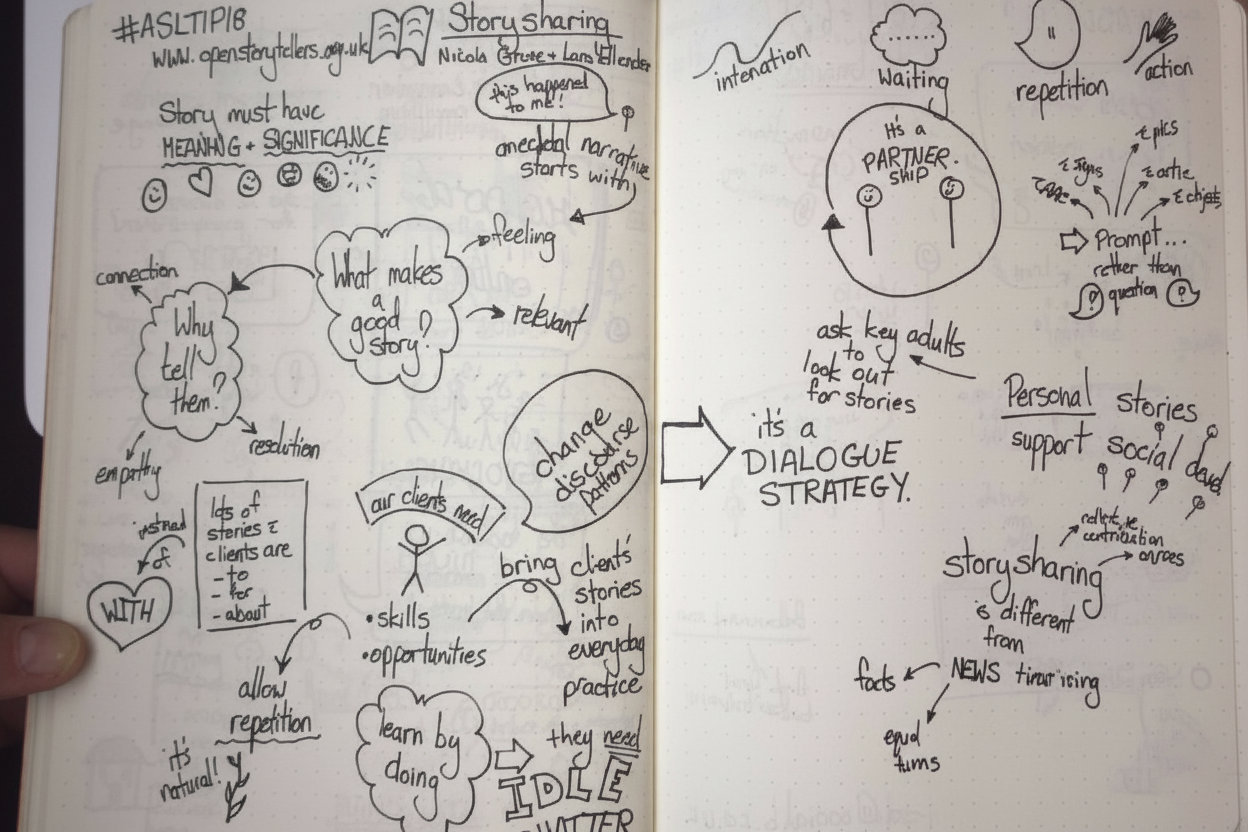 #ASLTIP18
www.openstorytellers.org.uk
Storysharing
Nicola Grove +
Story must have
MEANING + SIGNIFICANCE
this happened
to me!
anecdotal narrative
starts with
feeling
relevant
What makes
a
good
story?
connection
Why
tell
them?
empathy
resolution
instead
of
WITH
lots of
stories
clients are
- to
- for
- about
our clients need
• skills
• opportunities
change
discourse
patterns
bring clients'
stories
into
everyday
practice
allow
repetition
it's
natural!
learn by
doing
they need
IDLE
CHATTER
intonation
......
Waiting
"
repetition
action
It's a
PARTNER.
SHIP
pics
signs
objects
Prompt...
rather than
? question ?
ask key adults
to
look out
for stories
it's a
DIALOGUE
STRATEGY.
Personal stories
support social devel
storysharing
is different
from
NEWS
facts
equal
turns